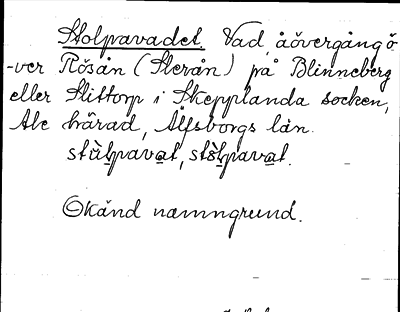 Stolpavadet. Vad, åövergång ö-
-ver Rösån (Slerån) på Blinneberg
eller Slittorp i Skepplanda socken,
Ale härad, Älfsborgs län.
Okänd namngrund.